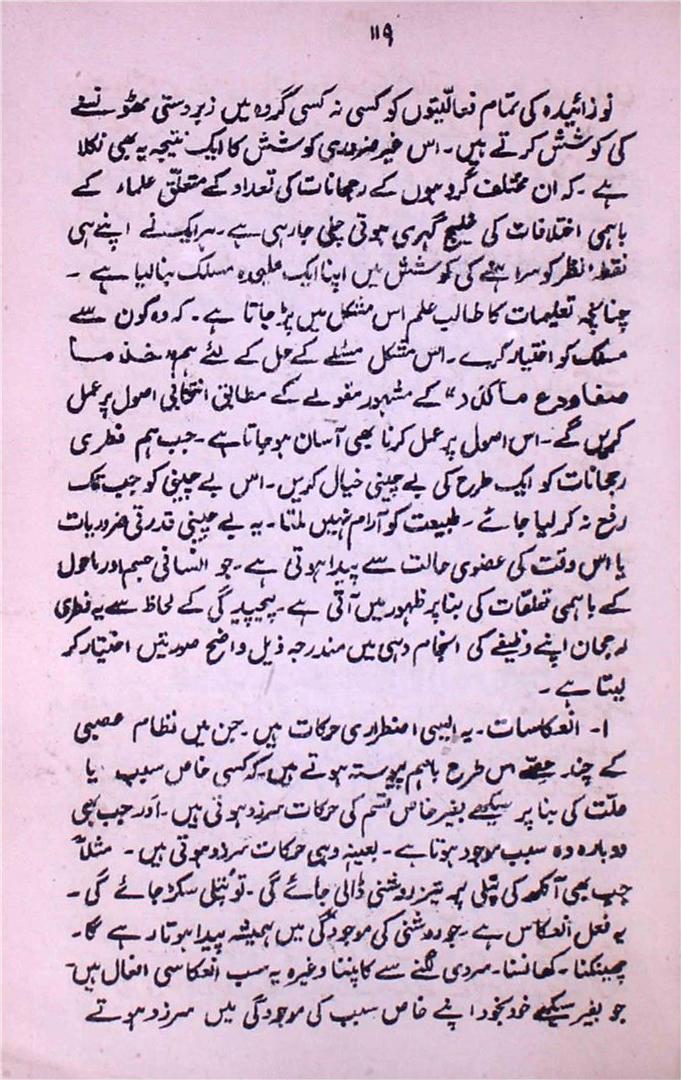 ۱۱۹
نوزائیدہ کی تمام فعالیتوں کو کسی نہ کسی گروہ میں زبردستی ٹھونسنے
کی کوشش کرتے ہیں۔ اس غیر ضروری کوشش کا ایک نتیجہ یہ بھی نکلا
ہے۔ کہ ان مختلف گروہوں کے رجحانات کی تعداد کے متعلق علماء کے
باہمی اختلافات کی خلیج گہری ہوتی چلی جا رہی ہے۔ ہر ایک نے اپنے ہی
نقطۂ نظر کو سراہنے کی کوشش میں اپنا ایک علیحدہ مسلک بنا لیا ہے ۔
چنانچہ تعلیمات کا طالب علم اس مشکل میں پڑ جاتا ہے۔ کہ وہ کون سے
مسلک کو اختیار کرے۔ اس مشکل مسئلے کے حل کے لئے ہم "خذ ما
صفا ودع ما کدر" کے مشہور مقولے کے مطابق انتخابی اصول پر عمل
کریں گے۔ اس اصول پر عمل کرنا بھی آسان ہو جاتا ہے۔ جب ہم فطری
رجحانات کو ایک طرح کی بے چینی خیال کریں۔ اس بے چینی کو جب تک
رفع نہ کر لیا جائے ۔ طبیعت کو آرام نہیں ملتا۔ یہ بے چینی قدرتی ضروریات
یا اس وقت کی عضوی حالت سے پیدا ہوتی ہے۔ جو انسانی جسم اور ماحول
کے باہمی تعلقات کی بنا پر ظہور میں آتی ہے۔ پیچیدگی کے لحاظ سے یہ فطری
رجحان اپنے وظیفے کی انجام دہی میں مندرجہ ذیل واضح صورتیں اختیار کر
لیتا ہے ۔
۱۔ انعکاسات۔ یہ ایسی اضطراری حرکات ہیں۔ جن میں نظام عصبی
کے چند حصے اس طرح باہم پیوستہ ہوتے ہیں۔ کہ کسی خاص سبب یا
علت کی بنا پر سیکھے بغیر خاص قسم کی حرکات سرزد ہوتی ہیں۔ اور جب بھی
دوبارہ وہ سبب موجود ہوتا ہے۔ بعینہٖ وہی حرکات سرزد ہوتی ہیں ۔ مثلاً
جب بھی آنکھ کی پتلی پر تیز روشنی ڈالی جائے گی۔ تو پتلی سکڑ جائے گی ۔
یہ فعل انعکاس ہے۔ جو روشنی کی موجودگی میں ہمیشہ پیدا ہوتا رہے گا۔
چھینکنا۔ کھانسنا۔ سردی لگنے سے کانپنا وغیرہ یہ سب انعکاسی افعال ہیں۔
جو بغیر سیکھے خود بخود اپنے خاص سبب کی موجودگی میں سرزد ہوتے